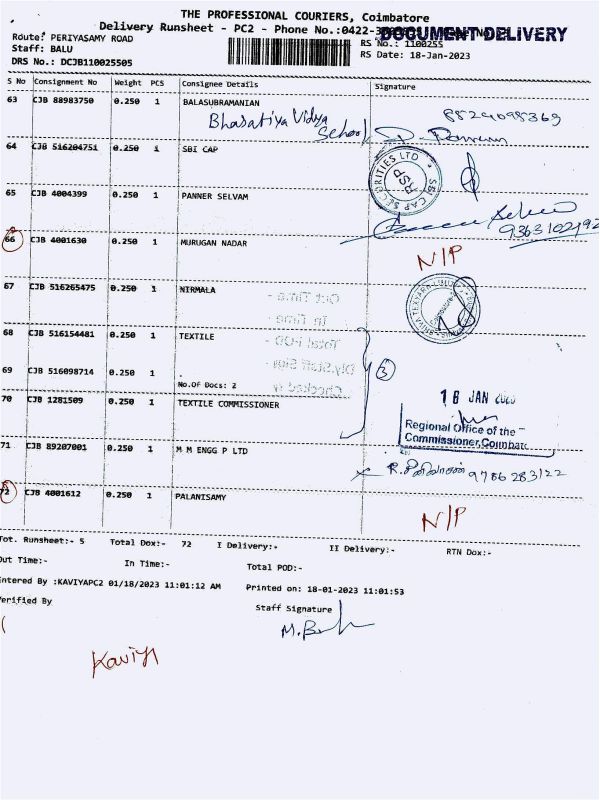 THE PROFESSIONAL COURIERS, Coimbatore
Delivery Runsheet - PC2 - Phone No.:0422-
DOCUMENT DELIVERY
Route: PERIYASAMY ROAD
RS No.: 1100255
Staff: BALU
RS Date: 18-Jan-2023
DRS No.: DCJB110025505
S No Consignment No Weight PCS Consignee Details Signature
63 CJB 88983750 0.250 1 BALASUBRAMANIAN
Bharatiya Vidya School
64 CJB 516204751 0.250 1 SBI CAP
SBI CAP SECURITIES LTD
RSP
65 CJB 4004399 0.250 1 PANNER SELVAM
9363102192
66 CJB 4001630 0.250 1 MURUGAN NADAR N/P
67 CJB 516265475 0.250 1 NIRMALA
Out Time -
In Time -
68 CJB 516154481 0.250 1 TEXTILE
Total POD -
Dly.Staff Sign -
69 CJB 516098714 0.250 1
3
No.Of Docs: 2
70 CJB 1281509 0.250 1 TEXTILE COMMISSIONER
18 JAN
Regional Office of the
Commissioner, Coimbat
71 CJB 89207001 0.250 1 M M ENGG P LTD
9786283122
72 CJB 4001612 0.250 1 PALANISAMY N/P
Tot. Runsheet:- 5 Total Dox:- 72 I Delivery:- II Delivery:- RTN Dox:-
Out Time:- In Time:- Total POD:-
Entered By :KAVIYAPC2 01/18/2023 11:01:12 AM Printed on: 18-01-2023 11:01:53
Verified By Staff Signature
Kaviya